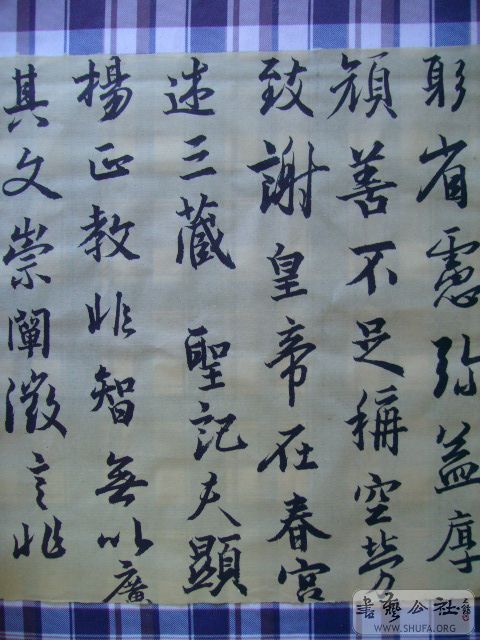 躬省慮弥益厚
顔善不足稱空勞
致謝皇帝在春宮
述三藏聖記夫顯
揚正教非智無以廣
其文崇闡微言非
書藝公社
WWW.SHUFA.ORG